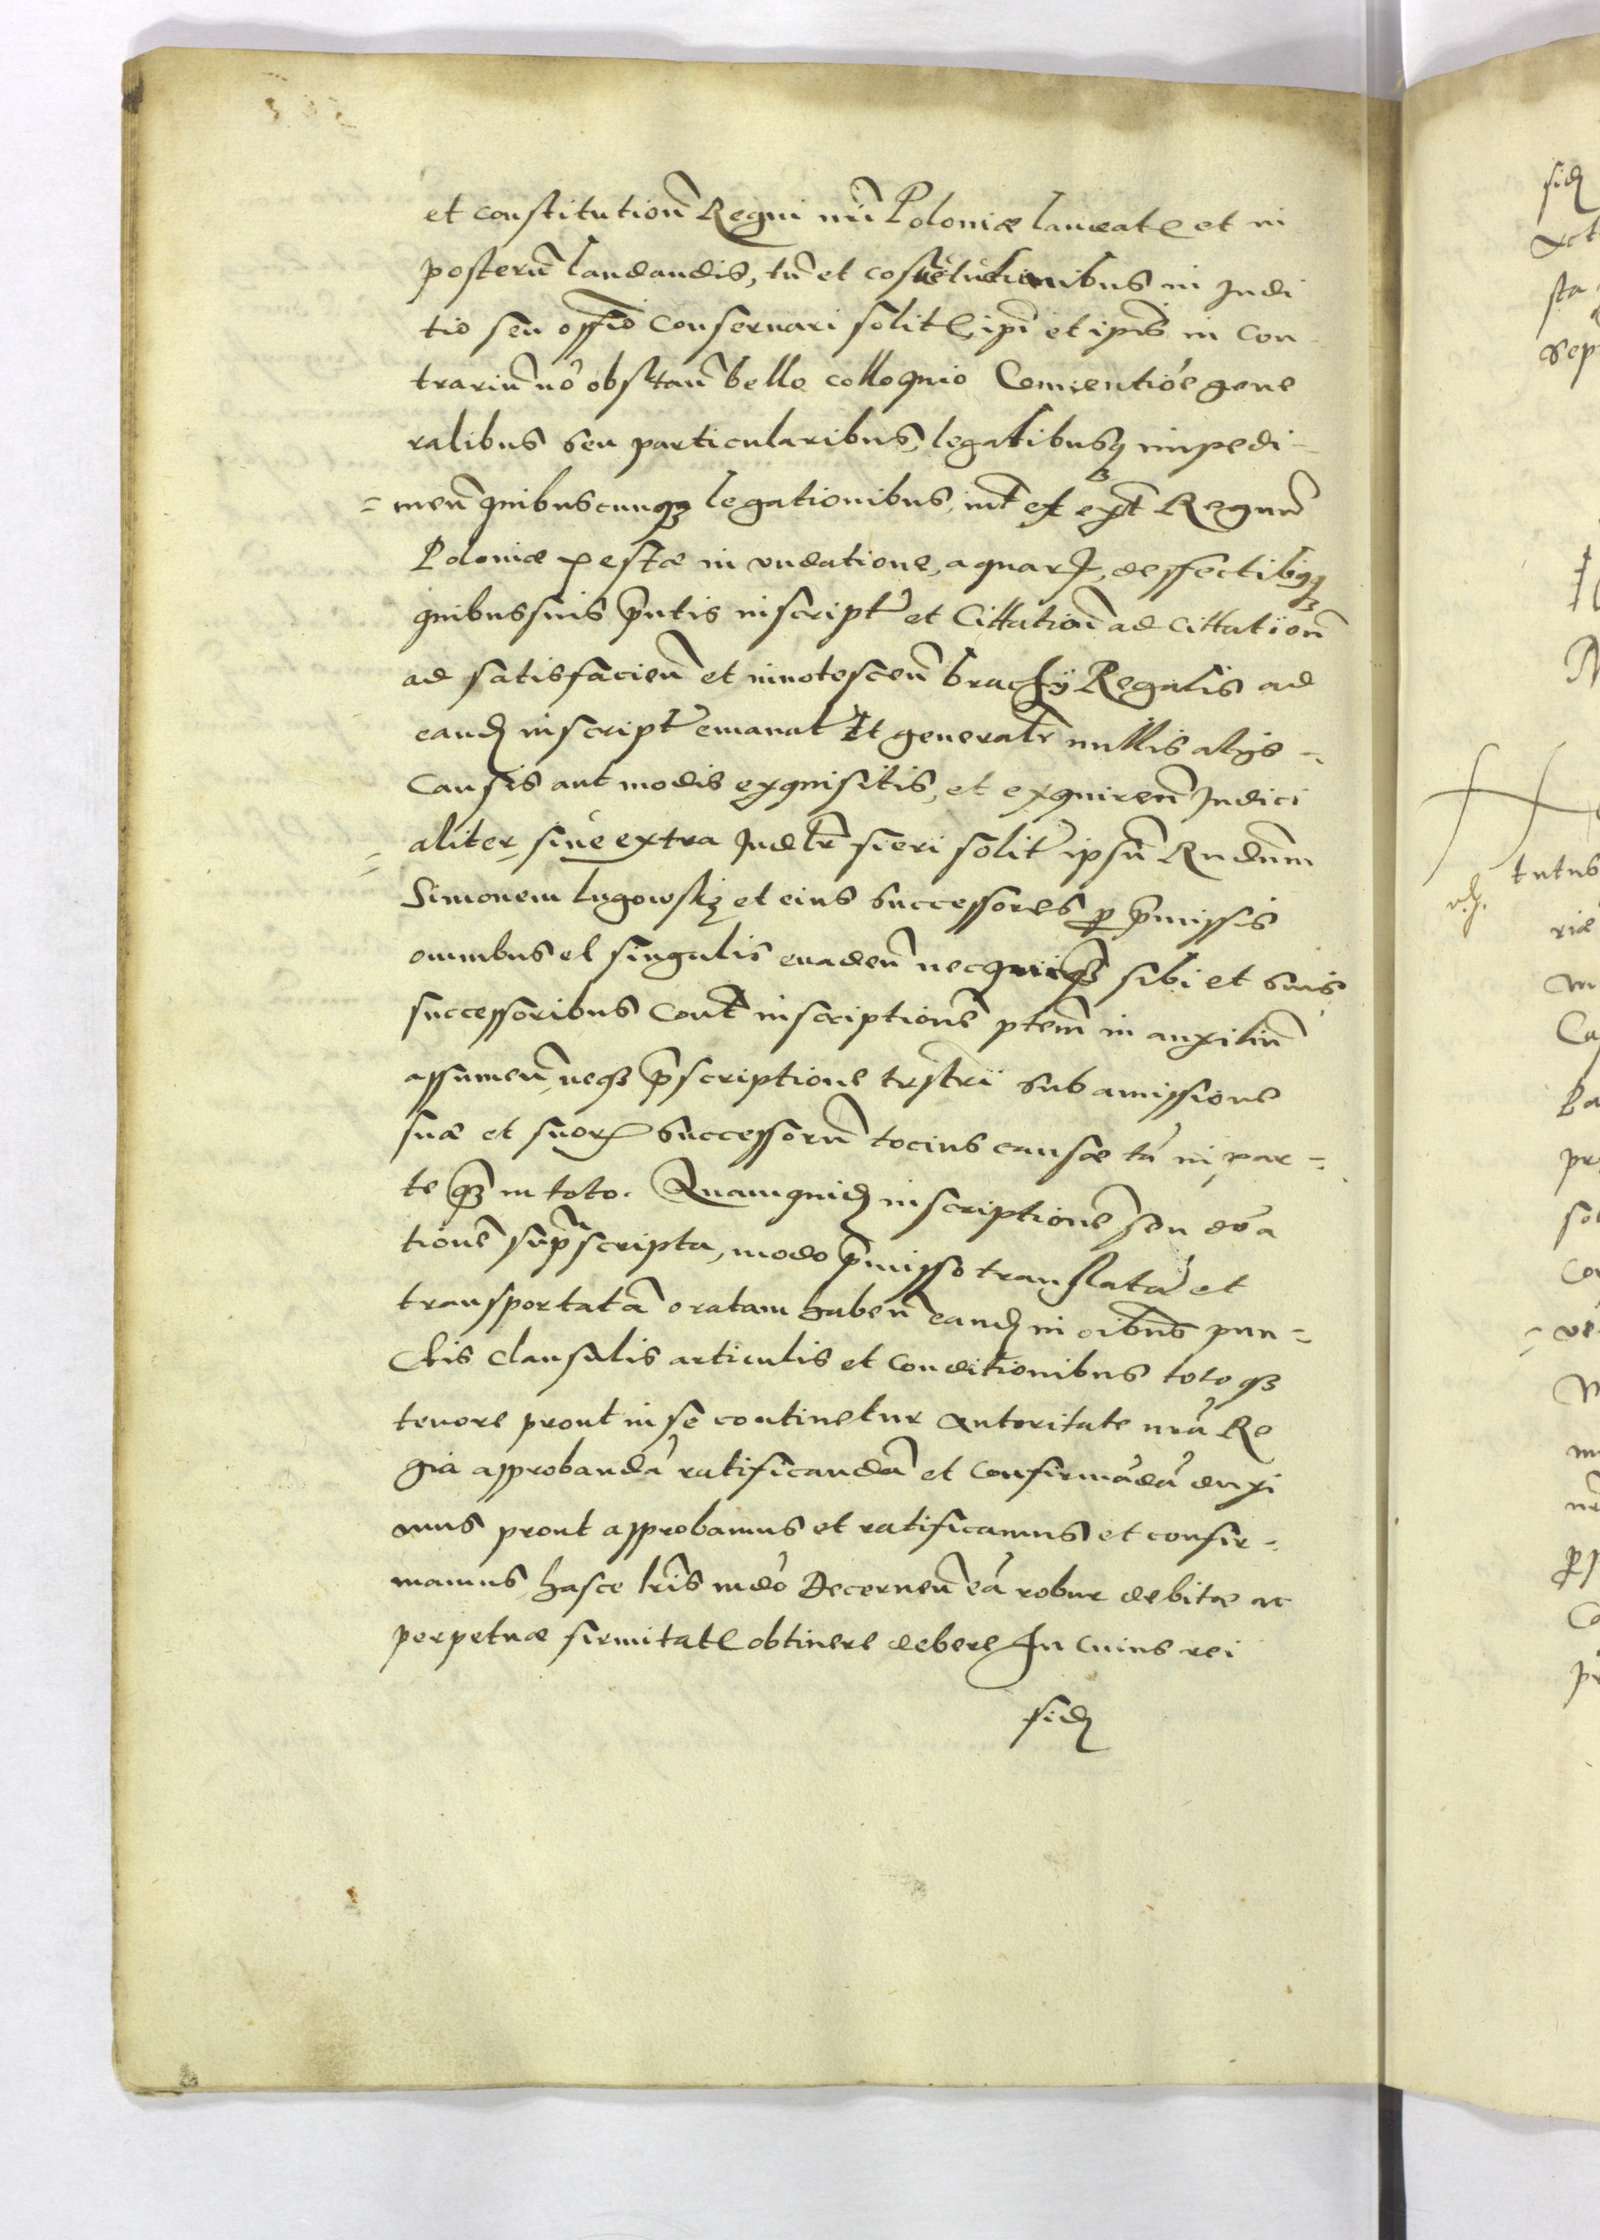 et constitution̄ Regni nr̄i Poloniæ laudatẹ et in
posterū laudandis, tū et cosuetudinibus in Judi
tio seu offīo conseruari solitẹ, ip̄i et ip̄is in con
trariū nō obstan̄ bello colloquio Conuentiōe gene
ralibus seu particularibus, legalibusq impedi-
=men̄ quibuscunq̨ legationibus, int̄ et ext̄ Regnū
Poloniæ peste in vndatione, aquarꝝ, deffectibusq̨
quibussuis pn̄tis inscript̄ et Cittation̄ ad cittation̄
ad satisfacien̄ et innotescen̄ brachÿ Regalis ad
eand̄ inscript̄ emanat̄ Et generalr̄ nullis alÿs -
Causis aut modis exquisitis, et exquiren̄ Judici
=aliter, siue extra Jud̄lr sieri solit̄ ipsū Rndum
Simonem lugowskÿ et eius successores ꝓ p̄missis
omnibus et singulis euaden̄ necquicq̄ sibi et suis
successoribus Cont̄ inscriptionē pn̄tem in auxiliū
assumen̄, neq̨ p̄scriptione tr̄stri sub amissione
suæ et suorꝝ successorū tocius causæ tā in par-
te q̄ in toto. Quamquid̄ inscriptionē seu dōa
tionē sup̄scripta, modo p̄misso translatā et
transportatā oratam haben̄ eand̄ in oībus pun=
ctis clausulis articulis et conditionibus totoq̨
tenore prout in se continetur autoritate nr̄a Re
gia approbandā ratificandā et confirmādā duxi
mus prout approbamus et ratificamus et confir-
mamus hasce lr̄is mdō Decernen̄ eā robur debitæ ac
perpetuæ firmitatẹ obtinere debere In cuius rei
fid̄